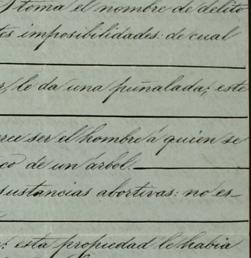 toma el nombre de delito
tes imposibilidades: de cual
lo da una puñalada; este
ser el hombre á quien se
co de un árbol.
sustancias abortivas: no es-
esta propiedad le habia